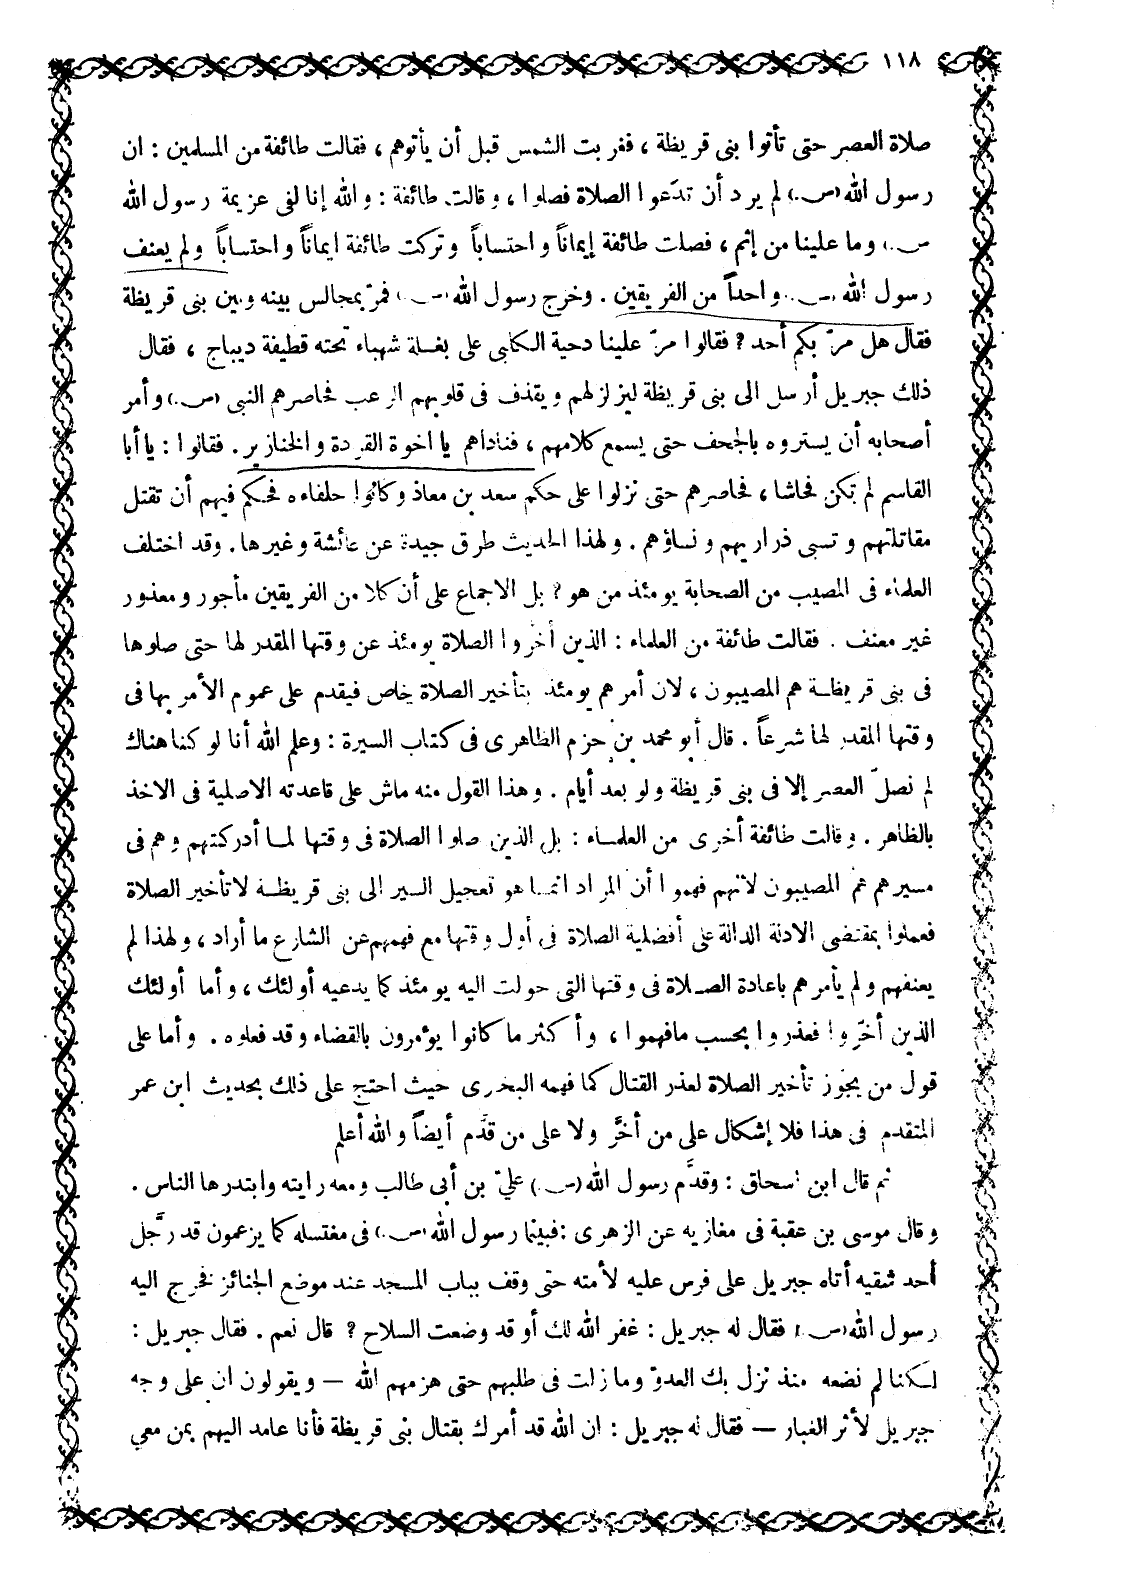 ١١٨
صلاة العصر حتى تأتوا بنى قريظة ، فغربت الشمس قبل أن يأتوهم ، فقالت طائفة من المسلمين : ان
رسول الله (س.) لم يرد أن تدَعوا الصلاة فصلوا ، وقالت طائفة : والله إنا لفى عزيمة رسول الله
س.) وما علينا من إثم ، فصلت طائفة إيماناً واحتساباً وتركت طائفة ايماناً واحتساباً ولم يعنف
رسول الله (س.) واحداً من الفريقين . وخرج رسول الله (س.) فمرّ بمجالس بينه وبين بنى قريظة
فقال هل مرّ بكم أحد ? فقالوا مرّ علينا دحية الكلبى على بغلة شهباء تحته قطيفة ديباج ، فقال
ذلك جبريل أرسل الى بنى قريظة ليزلزلهم ويقذف فى قلوبهم الرعب فحاصرهم النبى (س.) وأمر
أصحابه أن يستروه بالجحف حتى يسمع كلامهم ، فناداهم يا اخوة القردة والخنازير . فقالوا : يا أبا
القاسم لم تكن فحاشا ، فحاصرهم حتى نزلوا على حكم سعد بن معاذ وكانوا حلفاءه فحكم فيهم أن تقتل
مقاتلتهم وتسبى ذراريهم ونساؤهم . ولهذا الحديث طرق جيدة عن عائشة وغيرها . وقد اختلف
العلماء فى المصيب من الصحابة يومئذ من هو ? بل الاجماع على أن كلا من الفريقين مأجور ومعذور
غير معنف . فقالت طائفة من العلماء : الذين أخّروا الصلاة يومئذ عن وقتها المقدر لها حتى صلوها
فى بنى قريظة هم المصيبون ، لان أمرهم يومئذ بتأخير الصلاة خاص فيقدم على عموم الأمر بها فى
وقتها المقدر لها شرعاً . قال أبو محمد بن حزم الظاهرى فى كتاب السيرة : وعلم الله أنا لو كنا هناك
لم نصلّ العصر إلا فى بنى قريظة ولو بعد أيام . وهذا القول منه ماش على قاعدته الاصلية فى الاخذ
بالظاهر . وقالت طائفة أخرى من العلماء : بل الذين صلوا الصلاة فى وقتها لما أدركتهم وهم فى
مسيرهم هم المصيبون لانهم فهموا أن المراد انما هو تعجيل السير الى بنى قريظة لا تأخير الصلاة
فعملوا بمقتضى الادلة الدالة على أفضلية الصلاة فى أول وقتها مع فهمهم عن الشارع ما أراد ، ولهذا لم
يعنفهم ولم يأمرهم باعادة الصلاة فى وقتها التى حولت اليه يومئذ كما يدعيه أولئك ، وأما أولئك
الذين أخّروا فعذروا بحسب مافهموا ، وأكثر ما كانوا يؤمرون بالقضاء وقد فعلوه . وأما على
قول من يجوّز تأخير الصلاة لعذر القتال كما فهمه البخارى حيث احتج على ذلك بحديث ابن عمر
المتقدم فى هذا فلا إشكال على من أخَّر ولا على من قدَّم أيضاً والله أعلم
ثم قال ابن اسحاق : وقدَّم رسول الله (س.) علىّ بن أبى طالب ومعه رايته وابتدرها الناس .
وقال موسى بن عقبة فى مغازيه عن الزهرى : فبينما رسول الله (س.) فى مغتسله كما يزعمون قد رجَّل
أحد شقيه أتاه جبريل على فرس عليه لأمته حتى وقف بباب المسجد عند موضع الجنائز فخرج اليه
رسول الله (س.) فقال له جبريل : غفر الله لك أو قد وضعت السلاح ? قال نعم . فقال جبريل :
لكنا لم نضعه منذ نزل بك العدوّ وما زلت فى طلبهم حتى هزمهم الله — ويقولون ان على وجه
جبريل لأثر الغبار — فقال له جبريل : ان الله قد أمرك بقتال بنى قريظة فأنا عامد اليهم بمن معي